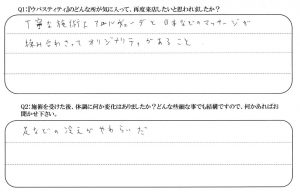 Q1:『ウパスティティ』のどんな所が気に入って、再度来店したいと思われましたか?
丁寧な施術とアーユルヴェーダと日本などのマッサージが
組み合わさってオリジナリティがあること
Q2:施術を受けた後、体調に何か変化はありましたか?どんな些細な事でも結構ですので、何かあればお
聞かせ下さい。
足などの冷えがやわらいだ